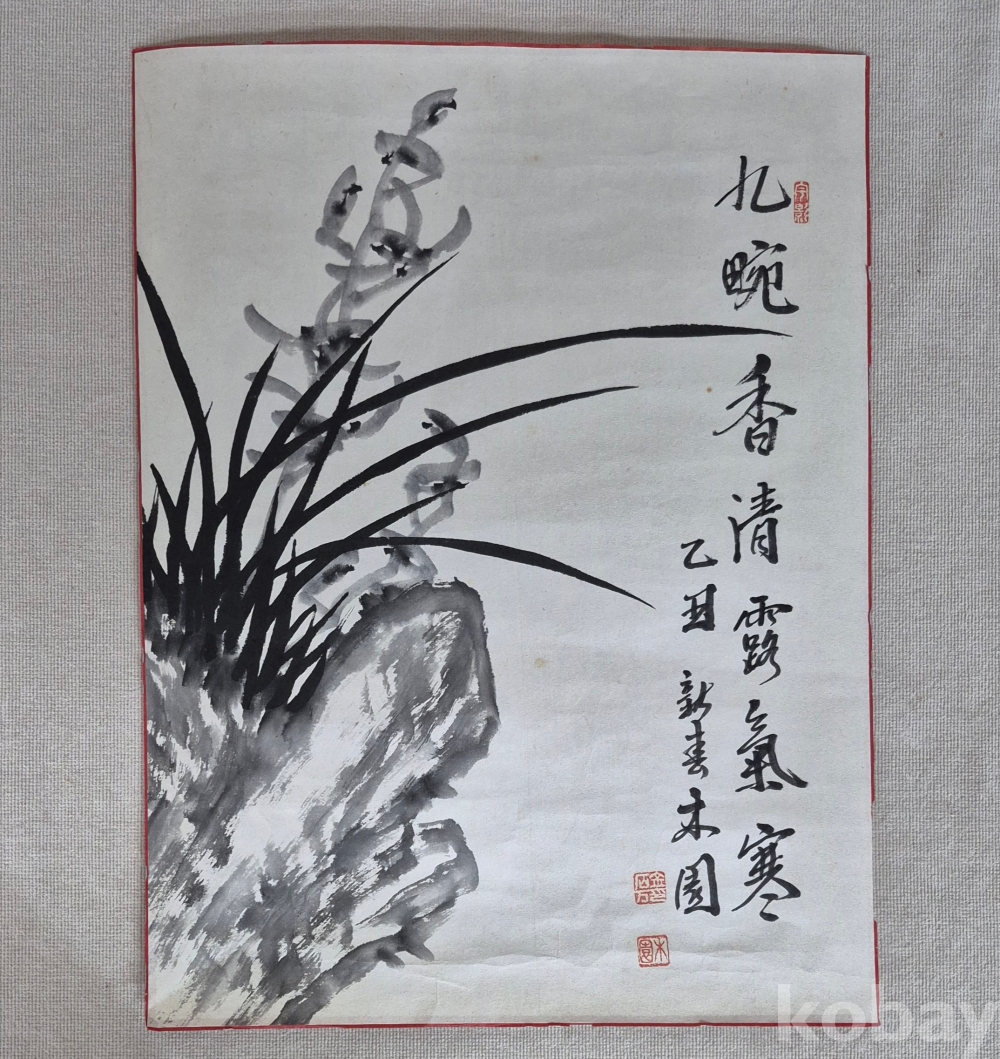 九畹香清露氣寒
乙丑 新春 木園
木園
kobay